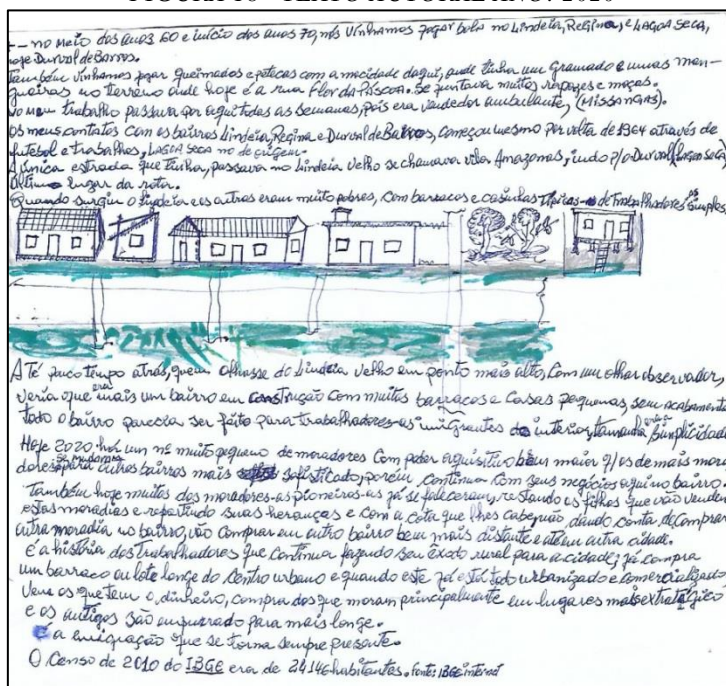 - no meio dos anos 60 e início dos anos 70, nós vínhamos jogar bola no Lindeia, Regina, e LAGOA SECA,
hoje Durval de Barros.
também vínhamos jogar queimados e petecas com a mocidade daqui, onde tinha um gramado e umas man-
gueiras no terreno onde hoje é a rua Flor da Páscoa. Se juntava muitos rapazes e moças.
no meu trabalho passava por aqui todas as semanas, pois era vendedor ambulante, (MISSANGAS).
os meus contatos com os bairros Lindeia, Regina e Durval de Barros, começou mesmo por volta de 1964 através de
futebol e trabalhos, LAGOA SECA no de origem.
A única estrada que tinha, passava no Lindeia Velho se chamava vila Amazonas, indo p/o Durval (Lagoa seca)
último lugar da rota.
Quando surgiu o Lindeia e os outros eram muito pobres, com barracos e casinhas típicas de Trabalhadores as simples
Até pouco tempo atrás, quem olhasse do Lindeia Velho em ponto mais alto, com um olhar observador,
veria que era mais um bairro em construção com muitos barracos e casas pequenas, sem acabamento
todo o bairro parecia ser feito para trabalhadores-as imigrantes do interior, tamanha era a simplicidade
Hoje 2020 há um nº muito pequeno de moradores com poder aquisitivo bem maior q/os demais mora
dores se mudaram para outros bairros mais sofisticado, porém, continua com seus negócios aqui no bairro.
Também hoje muitos dos moradores-as pioneiros-as já se faleceram, restando os filhos que vão vendendo
estas moradias e repartindo suas heranças e com a cota que lhes cabe, não dando conta de comprar
outra moradia no bairro, vão comprar em outro bairro bem mais distante e até em outra cidade.
É a história dos trabalhadores que continua fazendo seu êxodo rural para a cidade; já compra
um barraco ou lote longe do centro urbano e quando este já está todo urbanizado e comercializado
Vem os que tem o dinheiro, compra dos que moram principalmente em lugares mais extratégico
e os antigos são empurrado para mais longe.
É a emigração que se torna sempre presente.
O Censo de 2010 do IBGE era de 24146 habitantes. Fonte: IBGE internet